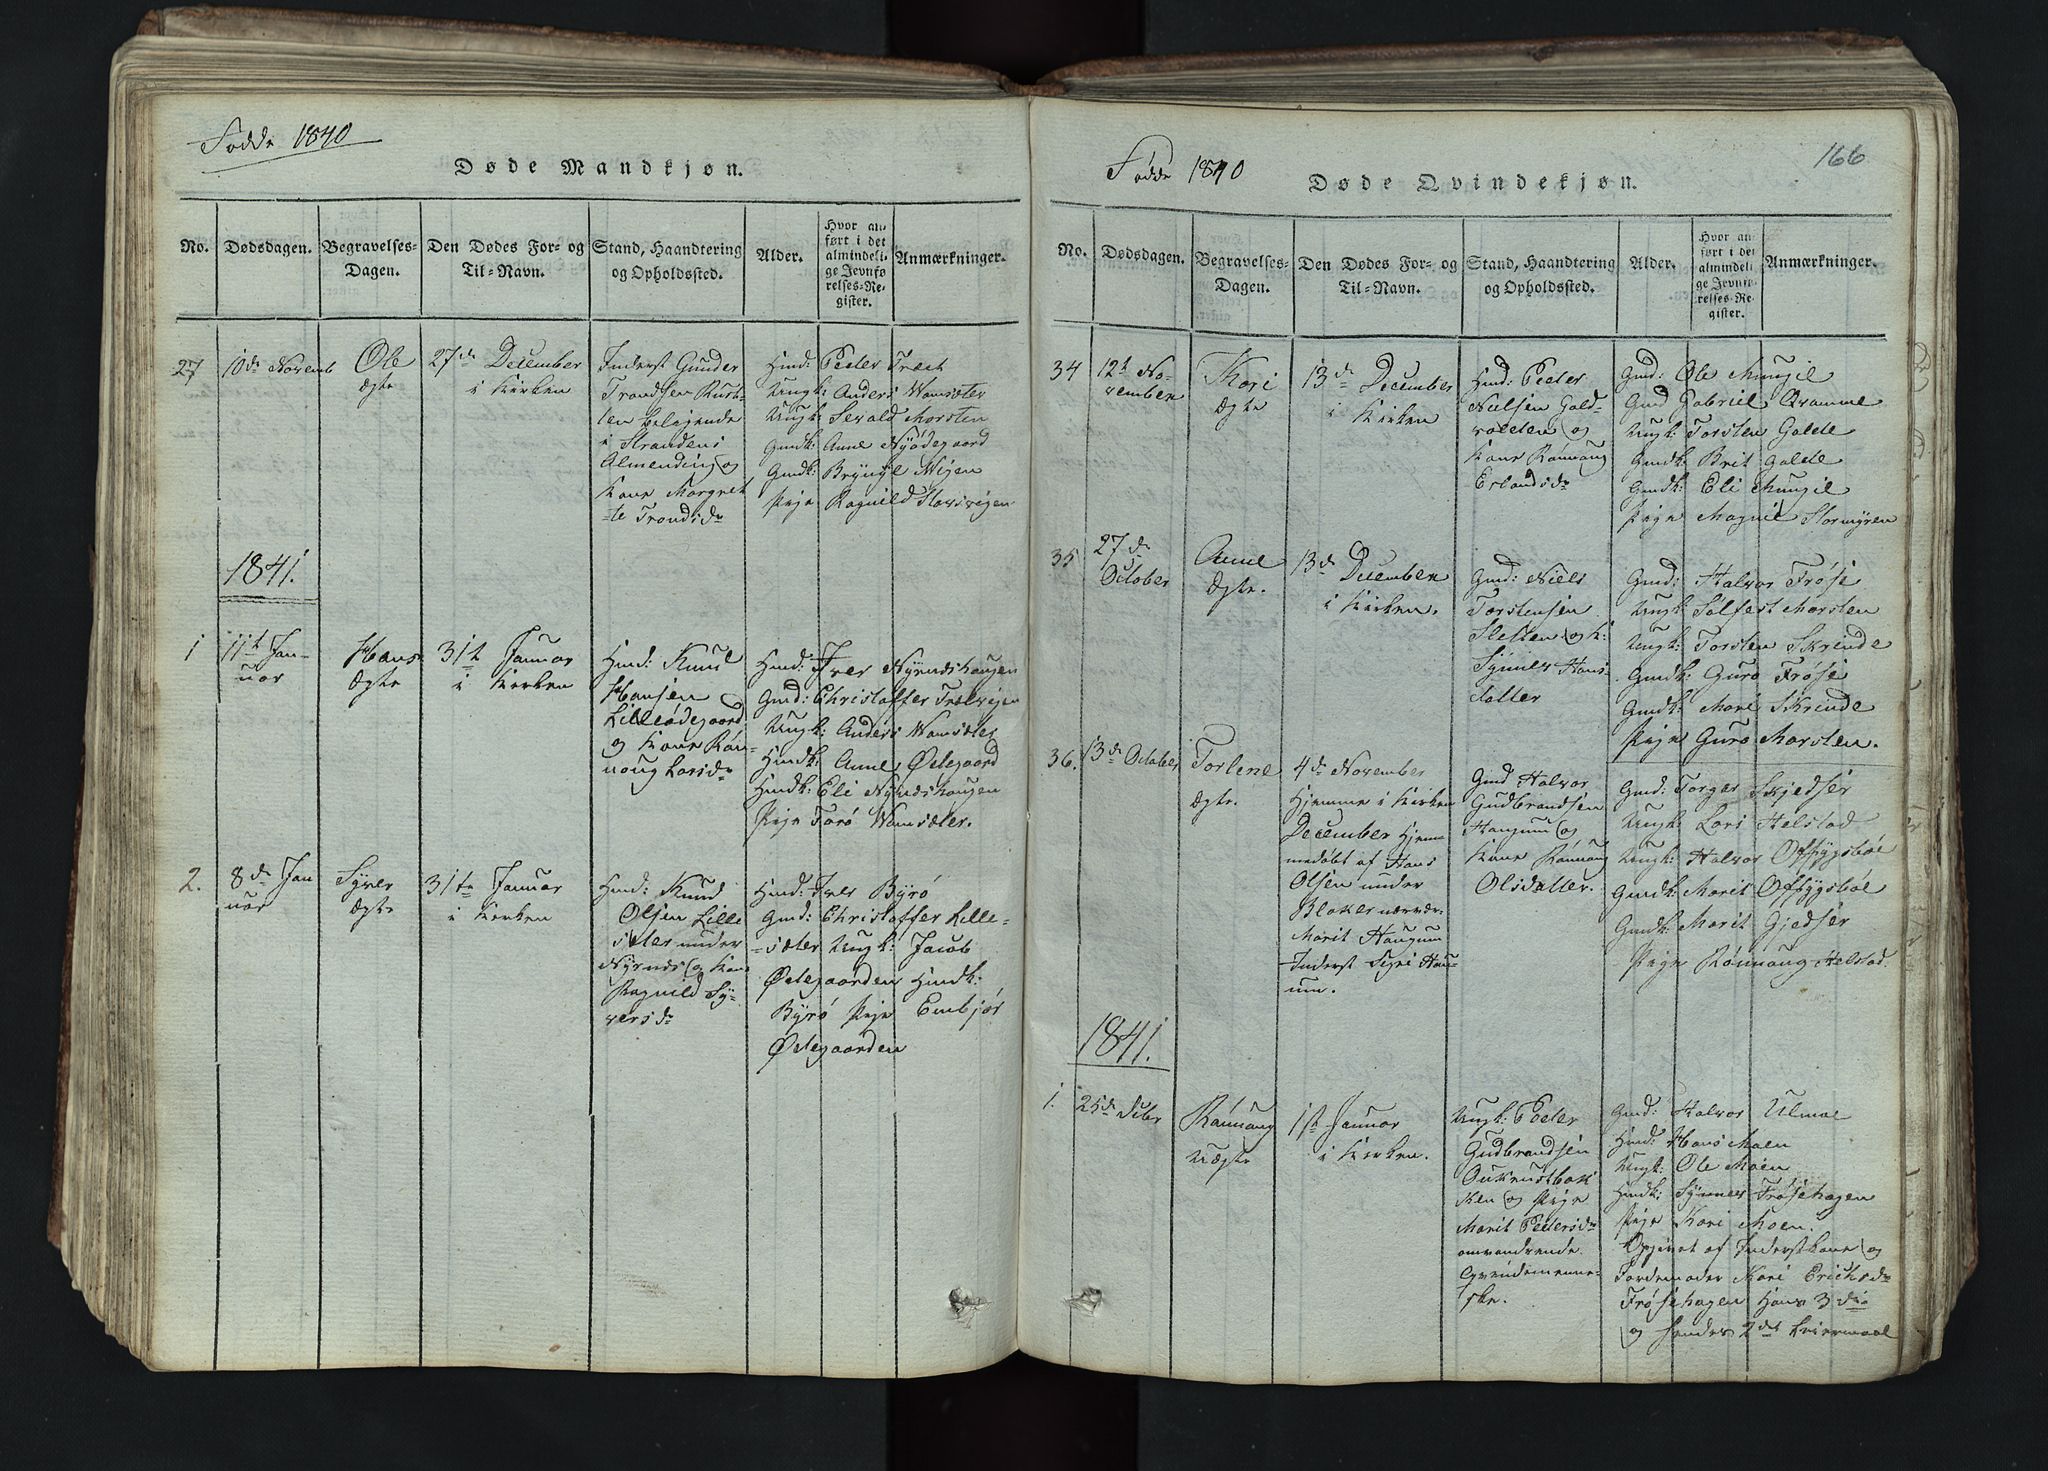 Fødde 1840
Døde Mandkjøn.
No.
Dødsdagen.
Begravelses-
Dagen.
Den Dødes For- og
Til-Navn.
Stand, Haandtering
og Opholdssted.
Alder.
Hvor an-
ført i det
almindeli-
ge Jevnfø
relses-Re-
gister.
Anmærkninger.
27
10de Novemb
Ole
Ægte
27de December
i Kirken
Inderst Gunder
Trondsen
i Strandens
Almending og
Kone Margret
te Trondsdr
Gmd: Peeter Træet
Ungk: Anders Wamsæter
Ungk: Sevald Morsten
Gmdk: Anne Nyødegaard
Gmdk: Bryngil Wigen
Pige Ragnild Storvigen
1841.
1
11te Jan-
uar
Hans
Ægte
31te Januar
i Kirken
Hmd: Knul
Hansen
Lilleødegaard
og Kone Røn-
noug Larsdr
Hmd: Iver Nyrndshaugen
Gmd: Christoffer Trælvigen
Ungk: Anders Wamsæter
Hmdk: Anne Ødegaard
Hmdk: Eli Nyrndshaugen
Pige Toro Wamsæter.
2.
8de Jan
uar
Syver
Ægte
31te Januar
i Kirken
Hmd: Knud
Olsen Lille
sæter under
Nyrnds og Kone
Ragnild Sy-
versdr
Hmd: Iver Byrø
Gmd: Christoffer Lille-
-sæter Ungk: Jacob
Ødegaarden Hmdk:
Byrø Pige Embjør
Ødegaarden
Fødde 1840
166
Døde Qvindekjøn.
No.
Dødsdagen.
Begravelses-
Dagen.
Den Dødes For- og
Til-Navn.
Stand, Haandtering
og Opholdssted.
Alder.
Hvor an-
ført i det
almindeli
ge Jevnfø-
relses-Re-
gister.
Anmærkninger.
34
12te No-
vember
Kari
Ægte
13de December
i Kirken
Hmd: Peeter
Nielsen Gald-
og
Kone Rønnoug
Erlandsdr
Gmd: Ole Mungil
Gmd Gabriel Qramme
Ungk: Torsten Galde
Gmdk: Brit Galde
Gmdk: Eli Mungil
Pige Magnil Stormyren
35
27de
October
Anne
Ægte.
13de December
i Kirken.
Gmd: Niels
Torstensen
Sletten og K:
Synnev Hans
datter
Gmd: Halvor Frøse
Ungk: Solfest Morsten
Ungk: Torsten Skrinde
Gmdk: Guro Frøse
Gmdk: Mari Skrinde
Pige Guro Morsten.
36.
13de October
Torlene
Ægte.
4de November
Hjemme i Kirken
December Hjem-
medøbt af Hans
Olsen under
Bloker nærvær:
Marit Haugum
Inderst Sigri Hau-
um.
Gmd Halvor
Gudbrandsen
Haugum og
Kone Rønnoug
Olsdatter.
Gmd: Torger Skjedsær
Ungk: Lars Helstad
Ungk: Halvor Offygsbøe
Gmdk: Marit Offygsbøe
Gmdk: Marit Gjedsær
Pige Rønnoug Helstad
1841.
1.
25de
Rønnoug
Uægte
1st Januar
i Kirken.
Ungk: Peeter
Gudbrandsen
og Pige
Marit Peetersdr
omvandrende
Qvindemenne-
ske.
Gmd: Halvor Ulmoe
Hmd: Hans Moen
Ungk: Ole Moen
Hmdk: Synnev Frøsehagen
Pige Kari Moen.
Opgivet af Inderstkone og
Jordemoder Kari Erichsdr
Frøsehagen Hans 3die
og hendes 2det Leiermaal